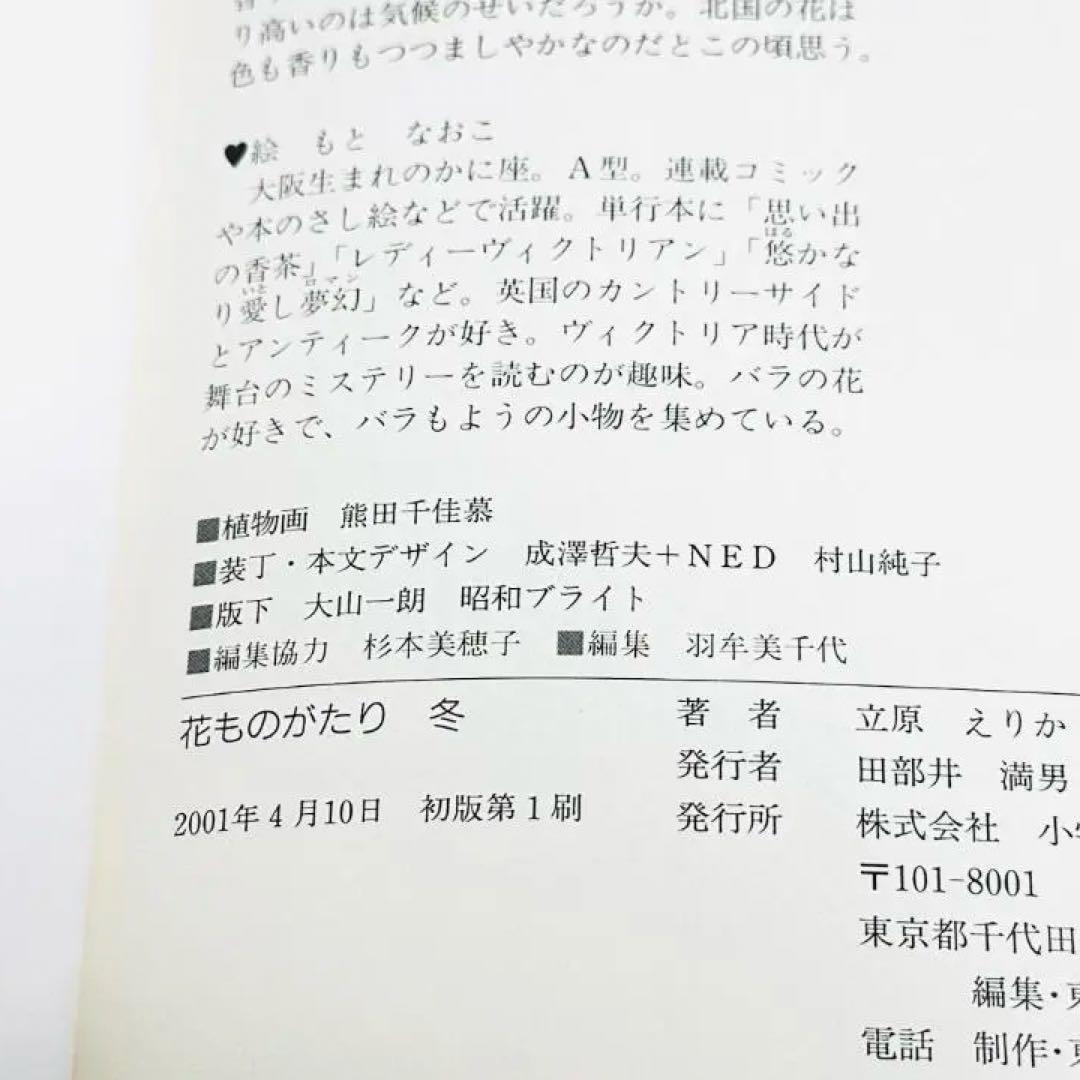 り高いのは気候のせいだろうか。北国の花は
色も香りもつつましやかなのだとこの頃思う。
♥絵 もと なおこ
大阪生まれのかに座。A型。連載コミック
や本のさし絵などで活躍。単行本に「思い出
の香茶」「レディーヴィクトリアン」「悠かな
はる
り愛し夢幻」など。英国のカントリーサイド
いと ロマン
とアンティークが好き。ヴィクトリア時代が
舞台のミステリーを読むのが趣味。バラの花
が好きで、バラもようの小物を集めている。
■植物画 熊田千佳慕
■装丁・本文デザイン 成澤哲夫+NED 村山純子
■版下 大山一朗 昭和ブライト
■編集協力 杉本美穂子 ■編集 羽牟美千代
花ものがたり 冬
2001年4月10日 初版第1刷
著 者 立原 えりか
発行者 田部井 満男
発行所 株式会社 小
〒101-8001
東京都千代田
編集・東
電話 制作・東